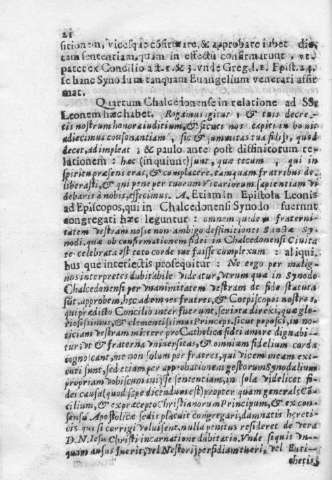 21
sitionem, vicesque
tam sententiam, quam in effectu confirmatunt, vt
patet ex Concilio a . & 3. vnde Greg. l. 1. Epist. 24.
se hanc Synodum tanquam Euangelium venerari affir
mat.
Quartum Chalcedonense in relatione ad SS.
Leonem hæc habet. Rogamus igitur, & tuis decre-
tis nostrum honora iuditium, & sicut nos capiti in bonis
adiecimus consonantiam, sic & summitas tua filijs, quod
decet, adimpleat; & paulo ante post diffinitorum re-
lationem: hæc (inquiunt) sunt, quæ tecum, qui in
spiritu præsens eras, & complacere, tamquam fratribus de-
liberasti, & qui pene per tuorum vicariorum sapientiam vi
debaris à nobis, effecimus. A. Etiam in Epistola Leonis
ad Episcopos, qui in Chalcedonensi Synodo fuerunt
congregati hæc leguntur: omnem quidem fraterni-
tatem vestram nosse non ambigo definitiones Sanctæ Sy-
nodi, quæ ob confirmationem fidei in Chalcedonensi Ciuita
te celebrata est toto corde me fuisse complexum: aliqui-
bus que interiectis prosequitur: Ne ergo per malig-
nos interpretes dubitabile videatur, vtrum quæ in Synodo
Chalcedonensi per vnanimitatem vestram de fide statuta
sūt, approbem, hæc ad omnes fratres, & Coepiscopos nostros,
qui prædicto Concilio interfuerunt, scripta direxi, quæ glo-
riosissimus, & clementissimus Princeps, sicut poposci, in no-
titiam vestram mittere pro Catholicæ fidei amore dignabi-
tur; vt & fraterna vniuersitas, & omnium fidelium corda
cognoscant, me non solum per fratres, qui vicem meam exe-
cuti sunt, sed etiam per approbationem gestorum Synodalium
propriam vobiscum inijsse sententiam, in sola videlicet fi-
dei causa (quod sæpe dicendum est) propter quam generale Cō-
cilium, & ex præcepto Christianorum Principum, & ex con-
sensu Apostolicæ sedis placuit congregari, damnatis hereti-
cis qui si corrigi voluissent, nulla penitus resideret de vera
D. N. Iesu Christi incarnatione dubitatio. Vnde si quis vn-
quam ausus fuerit, vel Nestorij perfidiam tueri, vel Euti-
chetis